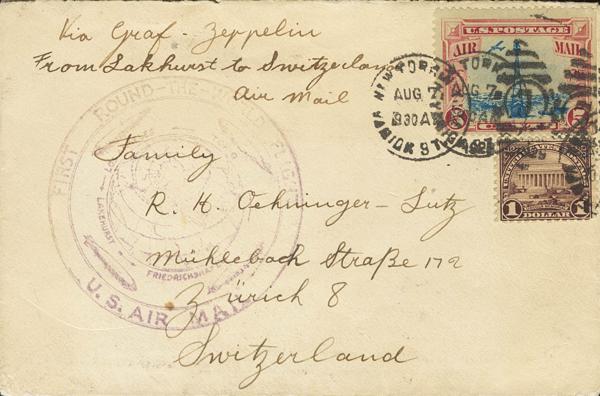 Via Graf-Zeppelin
From Lakhurst to Switzerland
Air Mail
Family
R. H. Oehninger-Lutz
Mühlebach Straße 172
Zürich 8
Switzerland
U.S. POSTAGE
AIR MAIL
5 5
UNITED STATES
1 DOLLAR 1
NEW YORK
AUG 7
930 AM
VARICK ST.
FIRST ROUND-THE-WORLD FLIGHT
LAKEHURST
FRIEDRICHSHAFEN
U.S. AIR MAIL